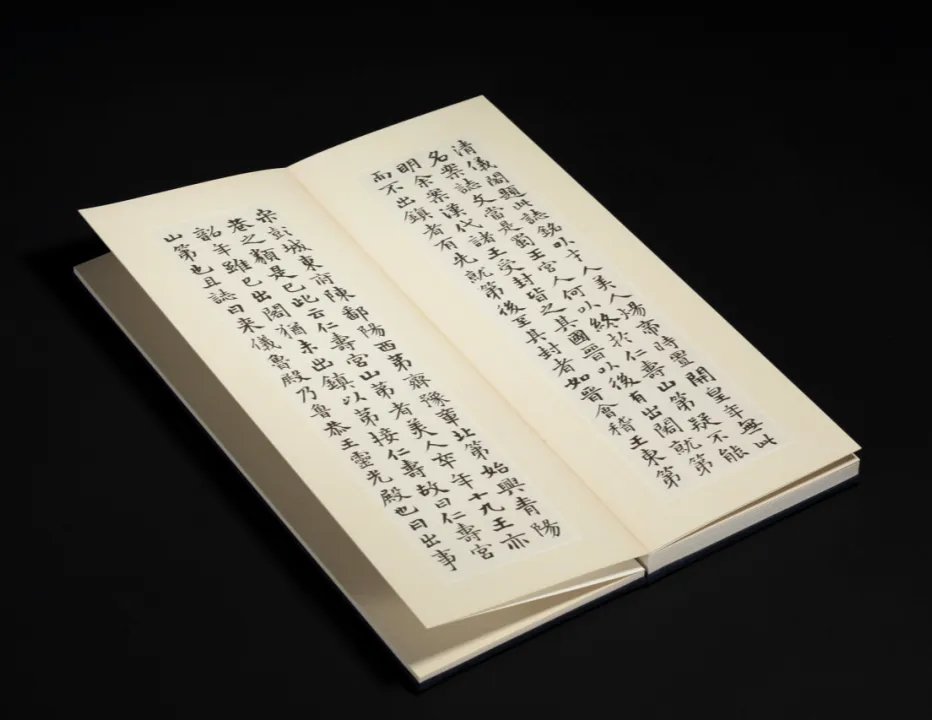 清儀閣題此誌銘以才人美人煬帝時置開皇年無此
名案誌文當是蜀王宮人何以終於仁壽山第疑不能
明余案漢代諸王受封皆之其國晉以後有出閣就第
而不出鎮者有先就第後至其封者如晉會稽王東第
宋彭城東府陳鄱陽西第齊豫章北第始興青陽
巷之類是已此云仁壽宮山第者美人卒年十九王亦
韶年雖已出閣猶未出鎮以第接仁壽故曰仁壽宮
山第也且誌曰来儀魯殿乃魯恭王靈光殿也曰出事